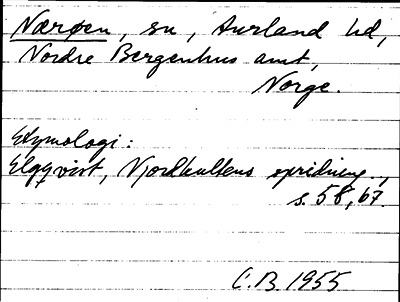 Nærøen, sn, Aurland hd,
Nordre Bergenhus amt,
Norge.
Etymologi:
Elgqvist, Njordkultens spridning.,
s. 58, 67.
C.B. 1955